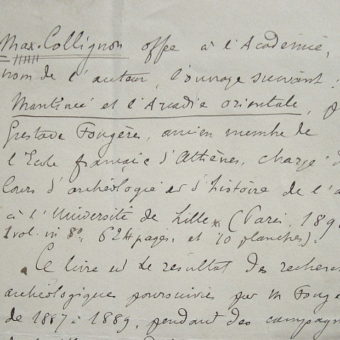 Max. Collignon offre à l'Académie,
nom de l'auteur, l'ouvrage suivant :
Mantinée et l'Arcadie orientale,
Gustave Fougères, ancien membre de
l'Ecole française d'Athènes, chargé
Cours d'archéologie et d'histoire de l'a
à l'Université de Lille (Paris, 189
1 vol. in 8°, 624 pages, et 10 planches).
Ce livre est le résultat des recher
archéologiques poursuivies par M. Foug
de 1887 à 1889, pendant des campagn